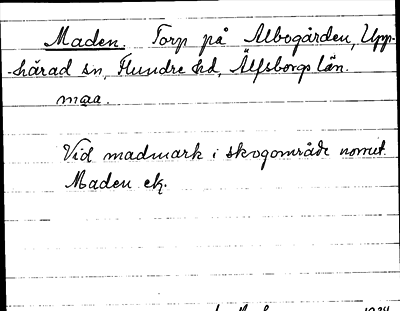 Maden. Torp på Albogården, Upp-
-härad sn, Flundre hd, Älfsborgs län.
maa.
Vid madmark i skogområde
Maden ek.